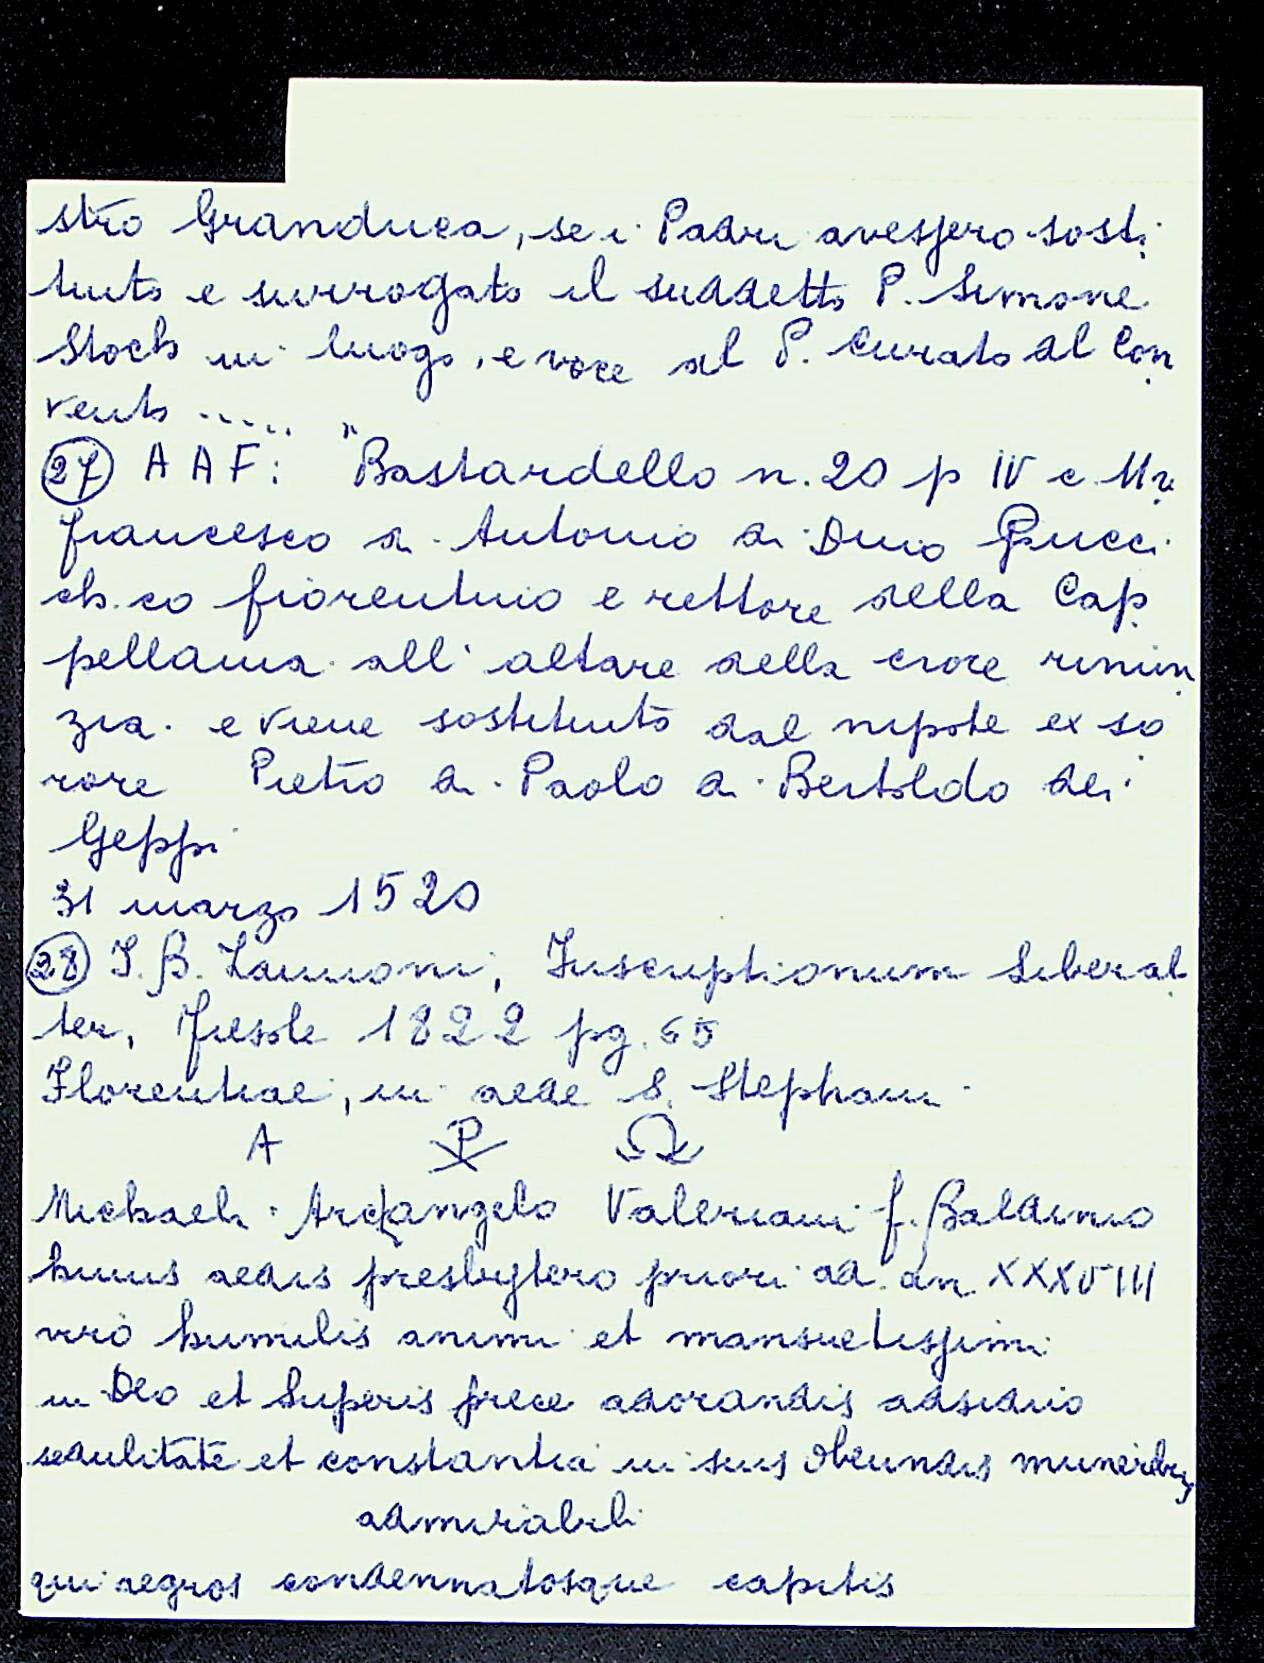 stro Granduca, se i Padri avessero sosti
tuito e surrogato il suddetto P. Simone
Stoch in luogo, e voce al P. Curato al Con
vento ..... "
(27) A A F: "Bastardello n. 20 p IV c. 11r.
francesco di Antonio di Dino Pucci
ch.co fiorentino e rettore della Cap
pellania all' altare della croce rinun
zia e viene sostituito dal nipote ex so
rore Pietro di Paolo di Bertoldo dei
Geppi
31 marzo 1520
(28) J. B. Zannoni, Inscriptionum liberal
ter, Fiesole 1822 pg. 65
Florentiae, in aede S. Stephani
A ☧ Ω
Michaeli Archangelo Valeriani f. Baldinio
huius aedis presbytero priori ad an. XXXVIII
viro humilis animi et mansuetissimi
in Deo et Superis prece adorandis adsiduo
sedulitate et constantia in suis obeundis muneribus
admirabili
qui aegros condennatosque capitis